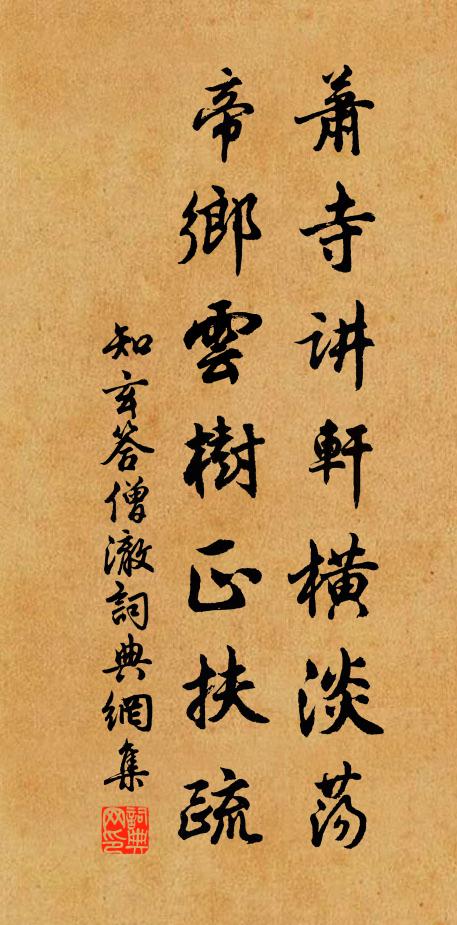 蕭寺讲軒横淡荡
帝鄉雲樹正扶疏
知玄答僧澈詞典網集
詞典网印